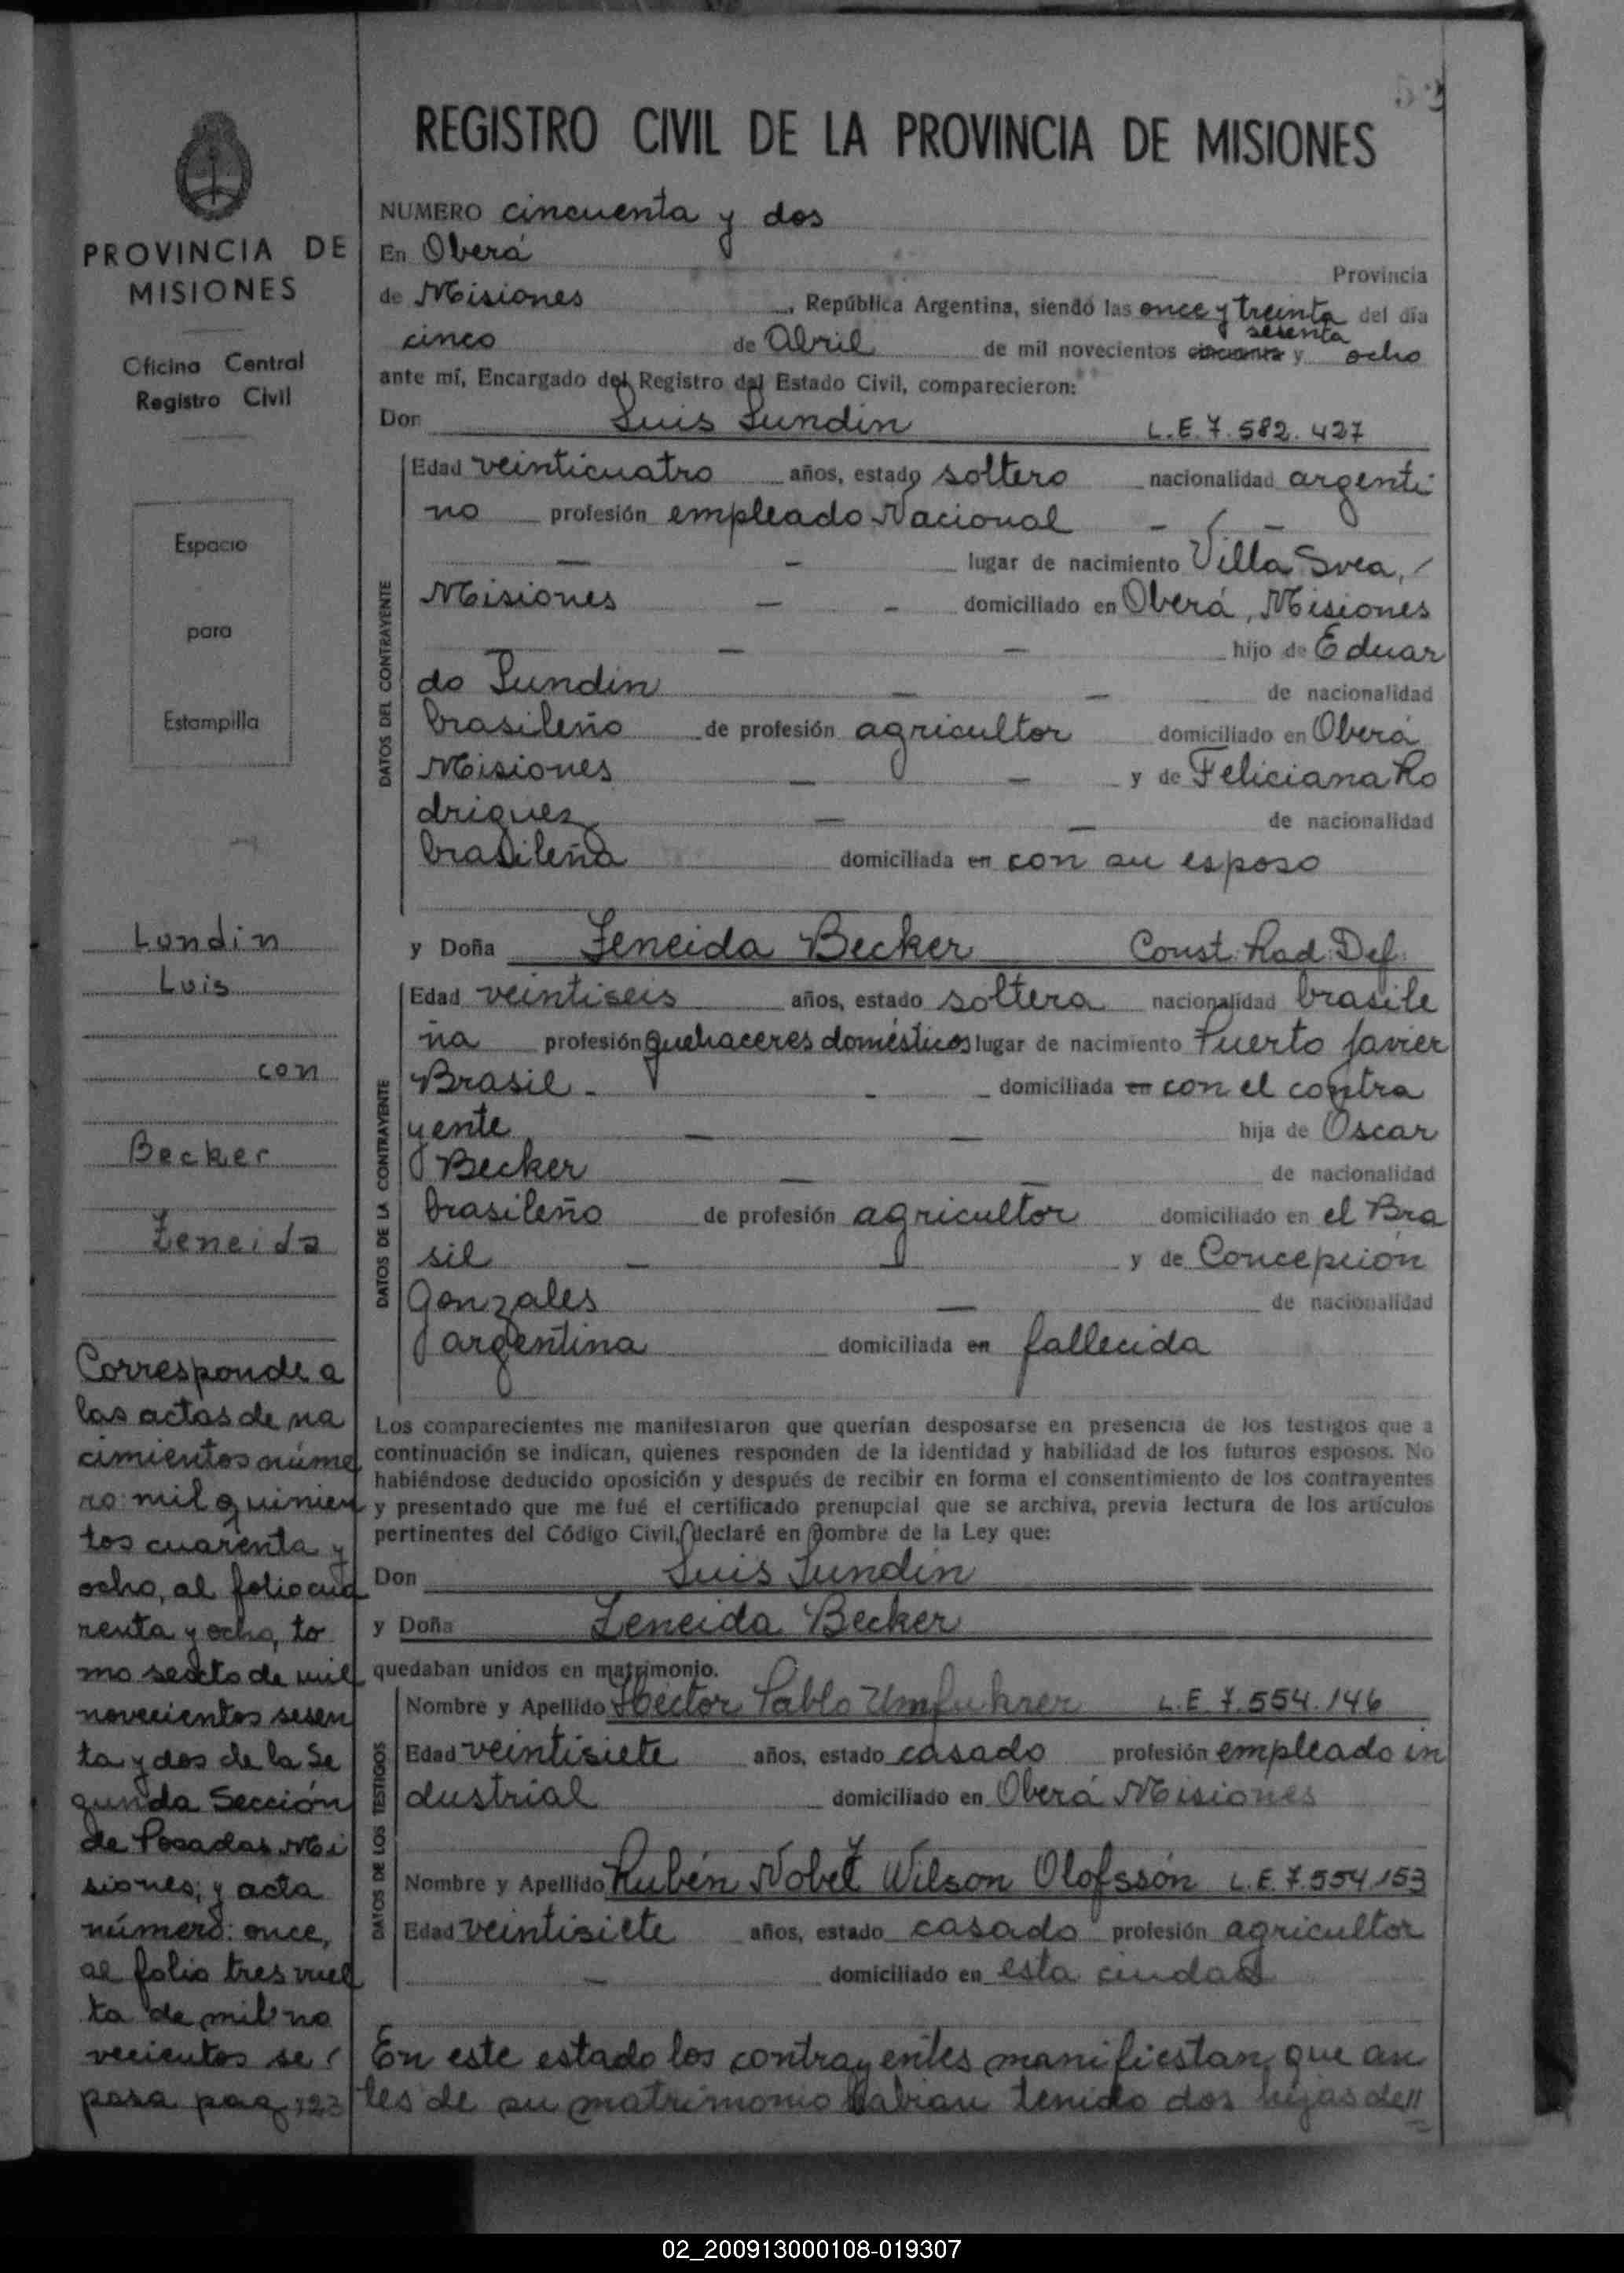 52
REGISTRO CIVIL DE LA PROVINCIA DE MISIONES
PROVINCIA DE
MISIONES
Oficina Central
Registro Civil
Espacio
para
Estampilla
Lundin
Luis
con
Becker
Zeneida
Corresponde a
las actas de na
cimientos núme
ro: mil quinien
tos cuarenta y
ocho, al folio cua
renta y ocho, to
mo sexto de mil
novecientos sesen
ta y dos de la Se
gunda Sección
de Posadas Mi
siones; y acta
número: once,
al folio tres vuel
ta de mil no
vecientos se
pasa pag 123
NUMERO cincuenta y dos
En Oberá Provincia
de Misiones , República Argentina, siendo las once y treinta del día
sesenta
cinco de Abril de mil novecientos cincuenta y ocho
ante mí, Encargado del Registro del Estado Civil, comparecieron:
Don Luis Lundin L.E. 7.582.427
DATOS DEL CONTRAYENTE
Edad veinticuatro años, estado soltero nacionalidad argenti
no profesión empleado Nacional
lugar de nacimiento Villa Svea,
Misiones domiciliado en Oberá, Misiones
hijo de Eduar
do Lundin de nacionalidad
brasileño de profesión agricultor domiciliado en Oberá
Misiones y de Feliciana Ro
driguez de nacionalidad
brasileña domiciliada en con su esposo
y Doña Zeneida Becker Const. Rad. Def.
DATOS DE LA CONTRAYENTE
Edad veintiseis años, estado soltera nacionalidad brasile
ña profesión quehaceres domésticos lugar de nacimiento Puerto Javier
Brasil - domiciliada en con el contra
yente hija de Oscar
Becker de nacionalidad
brasileño de profesión agricultor domiciliado en el Bra
sil y de Concepción
Gonzales de nacionalidad
argentina domiciliada en fallecida
Los comparecientes me manifestaron que querían desposarse en presencia de los testigos que a
continuación se indican, quienes responden de la identidad y habilidad de los futuros esposos. No
habiéndose deducido oposición y después de recibir en forma el consentimiento de los contrayentes
y presentado que me fué el certificado prenupcial que se archiva, previa lectura de los artículos
pertinentes del Código Civil, declaré en nombre de la Ley que:
Don Luis Lundin
y Doña Zeneida Becker
quedaban unidos en matrimonio.
DATOS DE LOS TESTIGOS
Nombre y Apellido Héctor Pablo Umfuhrer L.E. 7.554.146
Edad veintisiete años, estado casado profesión empleado in
dustrial domiciliado en Oberá Misiones
Nombre y Apellido Rubén Nobel Wilson Olofssón L.E. 7.554.153
Edad veintisiete años, estado casado profesión agricultor
domiciliado en esta ciudad
En este estado los contrayentes manifiestan que an
tes de su matrimonio habian tenido dos hijas de//
02_200913000108-019307